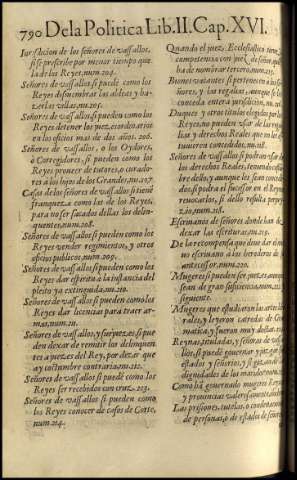 790 De la Politica Lib. II. Cap. XVI.
Iurisdicion de los señores de vassallos,
si se prescribe por menor tiempo que
la de los Reyes, num. 204.
Señores de vassallos si puedē como los
Reyes desmembrar las aldeas y ha-
zerlas villas. nu. 205.
Señores de vassallos si pueden como los
Reyes detener los juezes ordinarios
en los oficios mas de dos años. 206.
Señores de vassallos, o los Oydores,
ò Corregidores, si pueden como los
Reyes proueer de tutores, o curado-
res a los hijos de los Grandes. nu. 207.
Casas de los señores de vassallos si tienē
franqueza como las de los Reyes,
para no ser sacados dellas los delin-
quentes, num. 208.
Señores de vassallos si pueden como los
Reyes vender regimientos, y otros
oficios publicos num. 209.
Señores de vassallos si pueden como los
Reyes dar espera a la instancia del
pleyto ya extinguida, nu. 210.
Señores de vassallos si pueden como los
Reyes dar licencias para traer ar-
mas, num. 211.
Señores de vassallos, y sus juezes si pue-
den dexar de remitir los delinquen-
tes a juezes del Rey, por dezir que
ay costumbre contraria, nu. 212.
Señores de vassallos si puedē como los
Reyes ser recebidos con cruz. 213.
Señores de vassallos si pueden como
los Reyes conocer de casos de Corte,
num. 214.
Quando el juez Ecclesiastico tiene
competencia con juez de señor, quiē
ha de nombrar tercero, num. 215.
Bienes vacantes si pertenecen a los
señores, y las regalias, aunque se les
conceda entera jurisdicion, nu. 216.
Duques y otros titulos elegidos por los
Reyes, no pueden vsar de las rega-
lias y derechos Reales que no les es-
tuuieren concedidos. nu. 217.
Señores de vassallos si podran vsar de
los derechos Reales, teniendo costum-
bre dello, y aunque les sean concedi-
dos, si podra el sucessor en el Reyno
reuocarlos, si dello resulta perjuy-
zio, num. 218.
Escriuanos de señores, donde han de
dexar las escrituras, nu. 219.
De la recompensa que deue dar el mis-
mo escriuano a los herederos de su
antecessor, num. 220.
Mugeres si pueden ser juezes, aunque
sean de gran suficiencia, num. 221.
siguiente.
Mugeres que estudiaron las artes libe-
rales, y leyeron catedras de Gra-
matica, y fueron muy doctas.
Reynas, tituladas, y señoras de vassa-
llos, si puedē gouernar y juzgar sus
estados y señorios, y si gozan de las
dignidades de los maridos, num.
Como hā gouernado mugeres Reynos
y prouincias valerosamente,
Las prisiones, tutelas, o combates
de personas, o de estados de señores